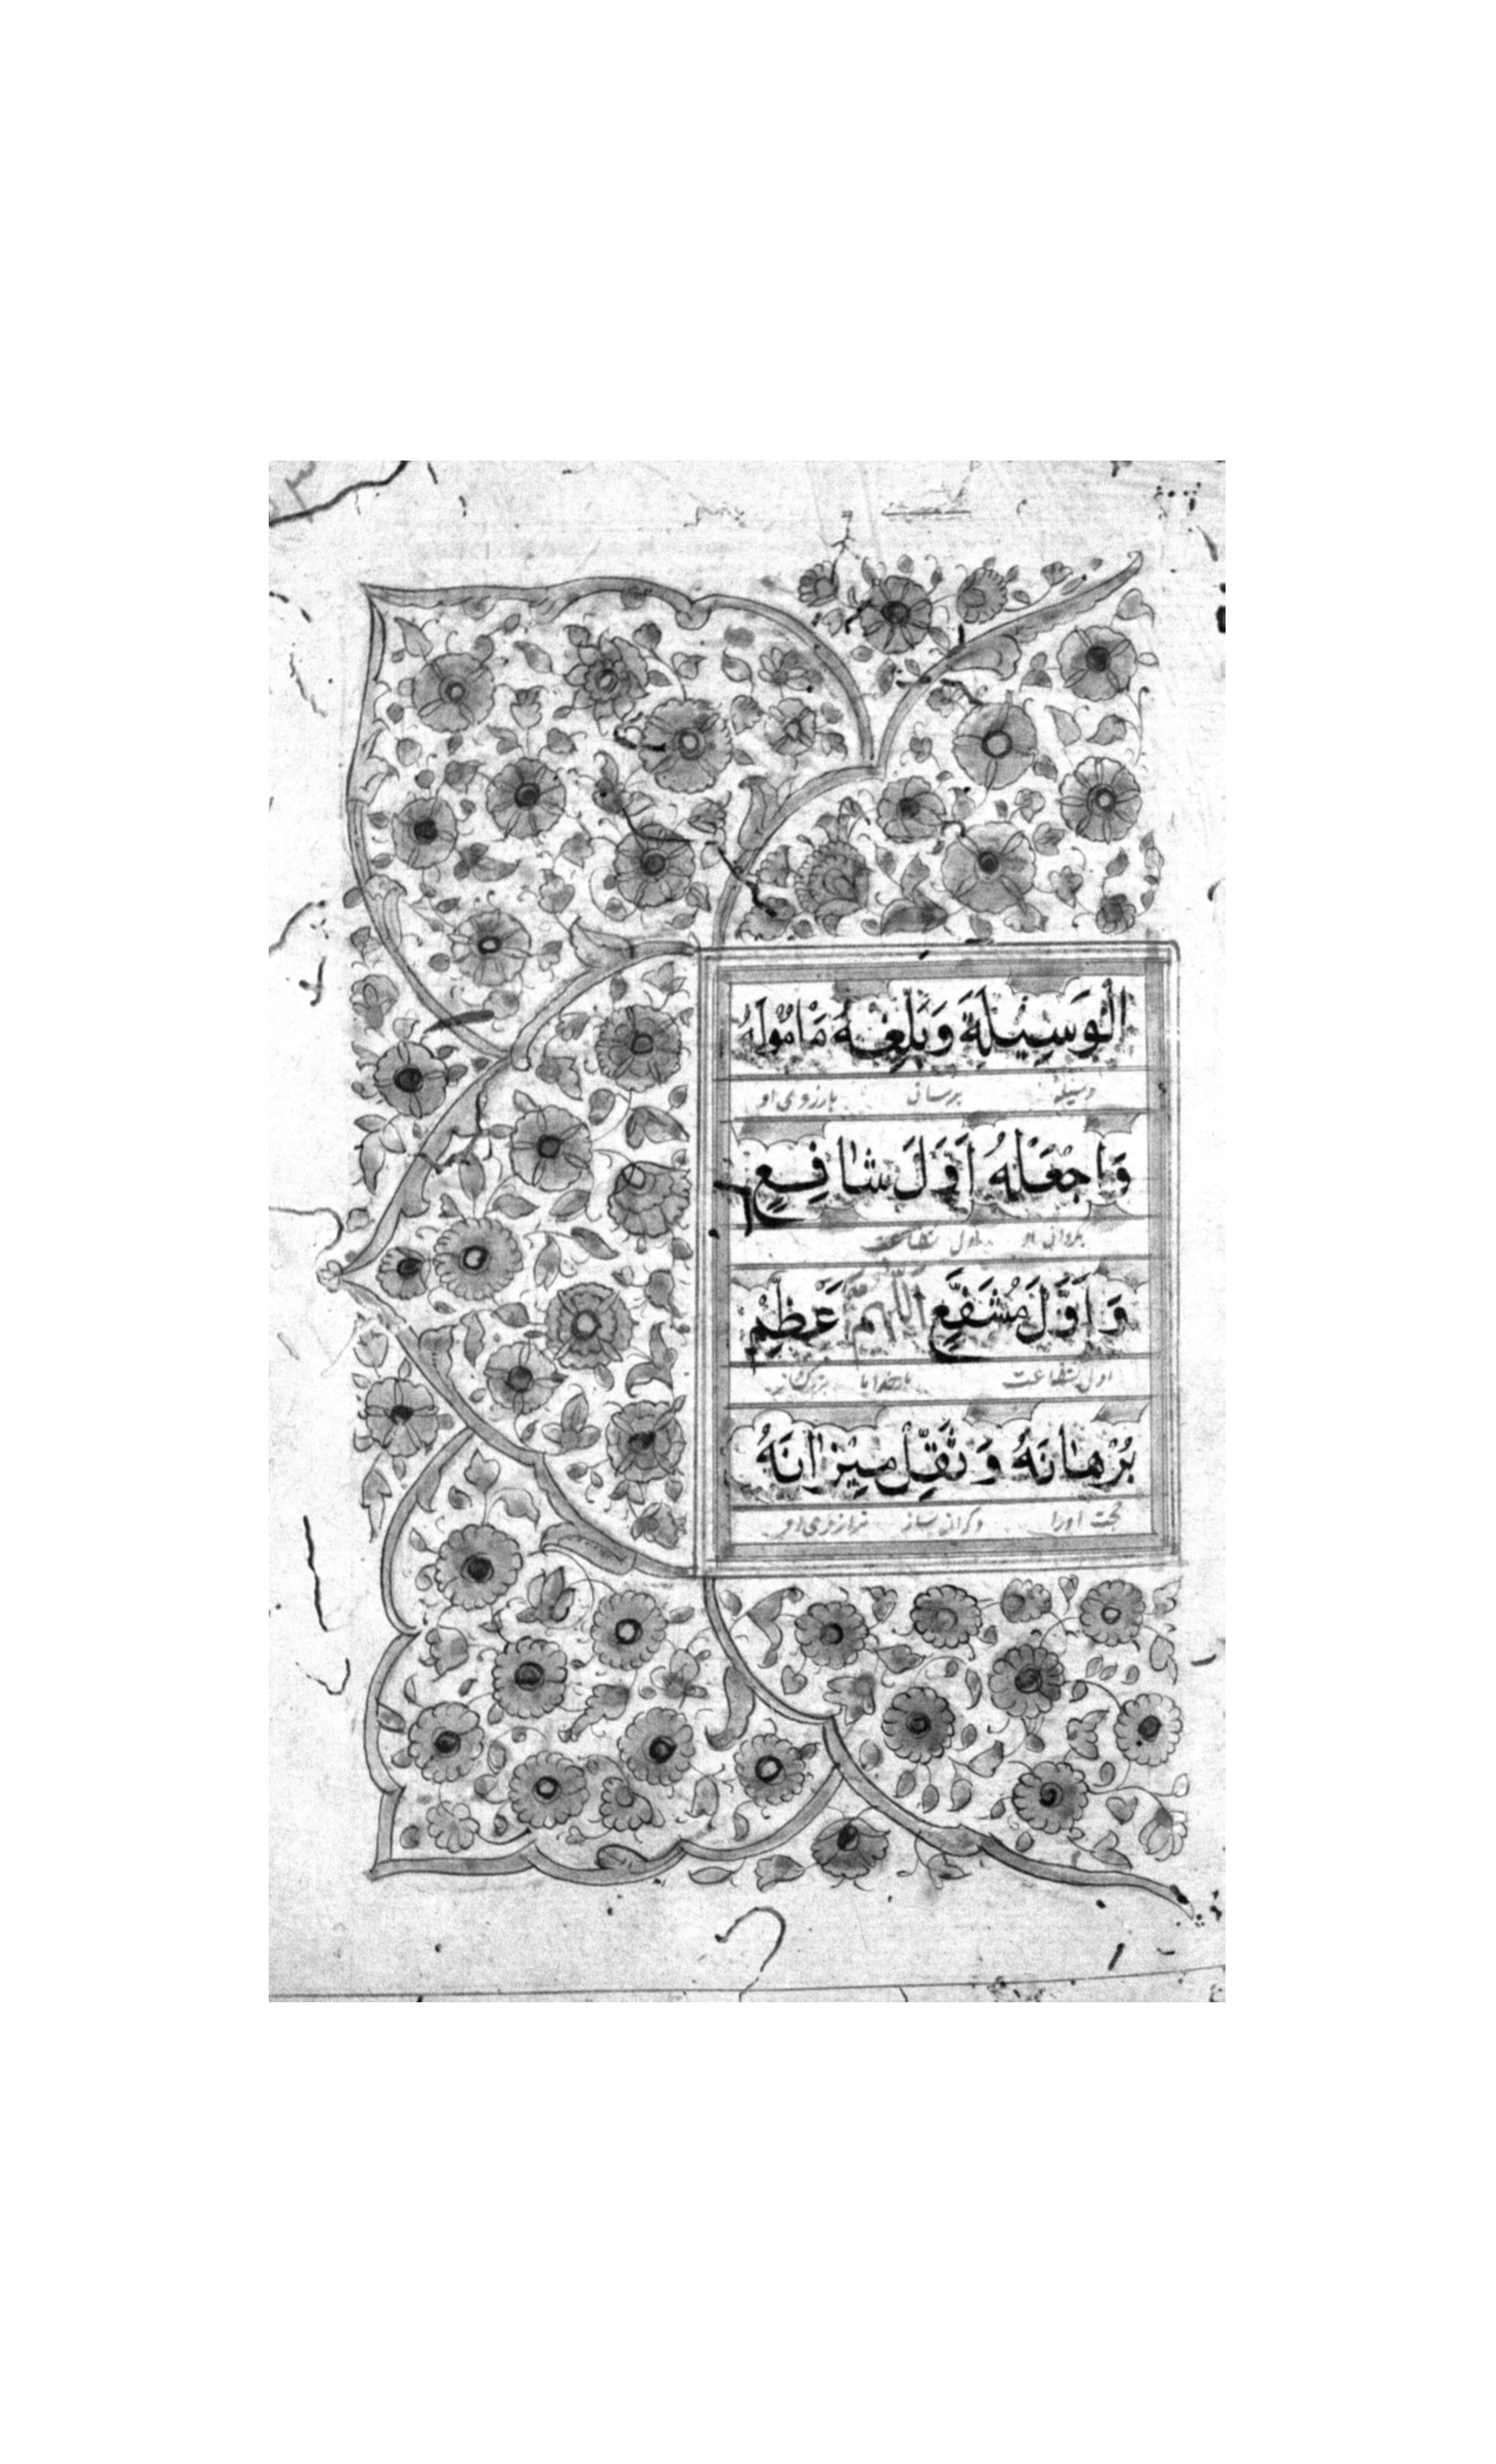 الْوَسِيلَةَ وَبَلِّغْهُ مَامُولَهُ
وسیله برسان بارزوی او
وَاجْعَلْهُ اَوَّلَ شَافِعٍ
اول شفاعت
وَاَوَّلَ مُشَفَّعٍ اَللّٰهُمَّ عَظِّمْ
اول شفاعت بارخدایا
بُرْهَانَهُ وَثَقِّلْ مِيزَانَهُ
حجت اورا وکران ساز ترازوی او